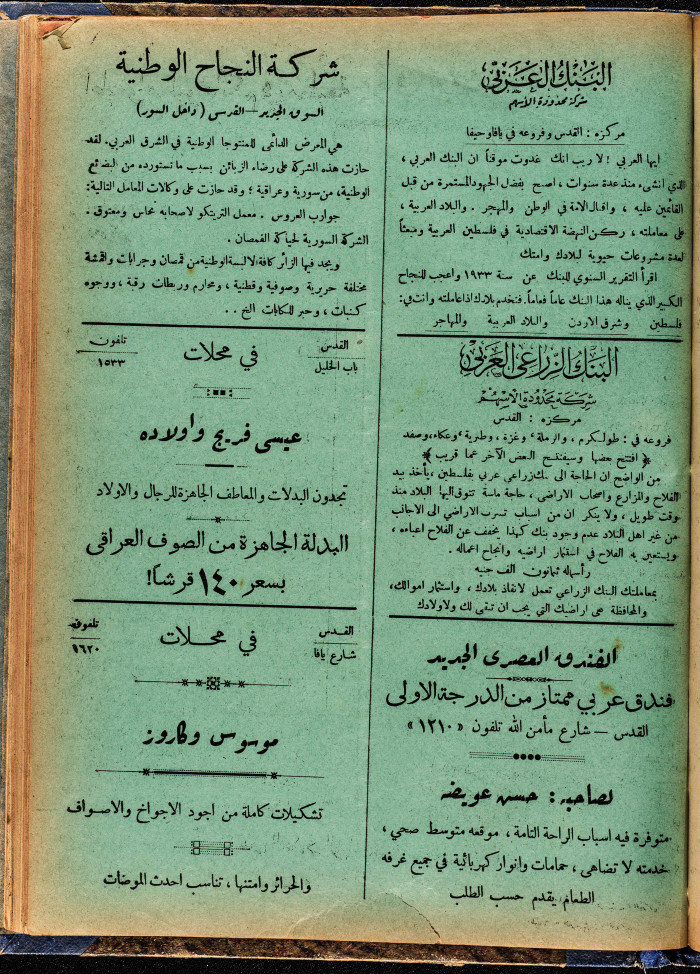 البنك العربي
شركة محدودة الأسهم
مركزه : القدس وفروعه في يافا وحيفا
ايها العربي ! لا ريب انك غدوت موقناً ان البنك العربي ،
الذي انشىء منذ عدة سنوات ، اصبح بفضل الجهود المستمرة من قبل
القائمين عليه ، واقبال الامة في الوطن والمهجر . والبلاد العربية ،
على معاملته ، ركن النهضة الاقتصادية في فلسطين العربية ومبعثاً
لعدة مشروعات حيوية لبلادك وامتك
اقرأ التقرير السنوي للبنك عن سنة ١٩٣٣ واعجب للنجاح
الكبير الذي يناله هذا البنك عاماً فعاماً. فتخدم بلادك اذا عاملته وانت في:
فلسطين وشرق الاردن والبلاد العربية والمهاجر
البنك الزراعي العربي
شركة محدودة الاسهم
مركزه : القدس
فروعه في : طولكرم ، والرملة ، وغزة ، وطبرية ، وعكاء، وصفد
﴿ افتتح بعضها وسيفتتح البعض الآخر عما قريب ﴾
من الواضح ان الحاجة الى بنك زراعي عربي بفلسطين ، يأخذ بيد
الفلاح والمزارع واصحاب الاراضي ، حاجة ماسة تتوق اليها البلاد منذ
وقت طويل ، ولا ينكر ان من اسباب تسرب الاراضي الى الاجانب
من غير اهل البلاد عدم وجود بنك كهذا يخفف عن الفلاح اعباءه ،
ويستعين به الفلاح في استثمار اراضيه وانجاح اعماله .
رأسماله ثمانون الف جنيه
بمعاملتك البنك الزراعي تعمل لانقاذ بلادك ، واستثمار اموالك،
والمحافظة على اراضيك التي يجب ان تبقى لك ولاولادك
الفندق العصري الجديد
فندق عربي ممتاز من الدرجة الاولى
القدس – شارع مأمن الله تلفون «١٢١٠»
لصاحبه : حسن عويضه
متوفرة فيه اسباب الراحة التامة ، موقعه متوسط صحي ،
خدمته لا تضاهى ، حمامات وانوار كهربائية في جميع غرفه
الطعام يقدم حسب الطلب
شركة النجاح الوطنية
السوق الجديد – القدس (داخل السور)
هي المعرض الدائمى للمنتوجا الوطنية في الشرق العربي. لقد
حازت هذه الشركة على رضاء الزبائن بسبب ما تستورده من البضائع
الوطنية، من سورية وعراقية ؛ وقد حازت على وكالات المعامل التالية:
جوارب العروس . معمل التريكو لاصحابه نحاس ومعتوق .
الشركة السورية لحياكة القمصان .
ويجد فيها الزائر كافة الالبسة الوطنية من قمصان وجرابات واقمشة
مختلفة حريرية وصوفية وقطنية ، ومحارم وربطات رقبة ، ووجوه
كنبات ، وحبر للكتابات الخ . .
القدس
باب الخليل
في محلات
تلفون
١٥٣٣
عيسى فريج واولاده
تجدون البدلات والمعاطف الجاهزة للرجال والاولاد
البدلة الجاهزة من الصوف العراقى
بسعر ١٤٠ قرشاً!
القدس
شارع يافا
في محلات
تلفون
٩٦٢٠
موسوس وكاروز
تشكيلات كاملة من اجود الاجواخ والاصواف
والحرائر وامتنها ، تناسب احدث الموضات